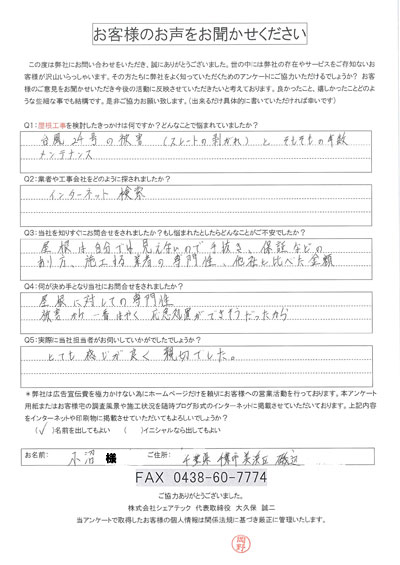 お客様のお声をお聞かせください
この度は弊社にお問い合わせをいただき、誠にありがとうございました。世の中には弊社の存在やサービスをご存知ないお
客様が沢山いらっしゃいます。その方たちに弊社をよく知っていただくためのアンケートにご協力いただけるでしょうか？ お客
様のご意見をお聞かせいただき今後の活動に反映させていただきたいと考えております。良かったこと、嬉しかったことどのよ
うな些細な事でも結構です。是非ご協力お願い致します。（出来るだけ具体的に書いていただければ幸いです）
Q1：屋根工事を検討したきっかけは何ですか？どんなことで悩まれていましたか？
台風24号の被害（スレートの剥がれ）と、そもそもの年数
メンテナンス
Q2：業者や工事会社をどのように探されましたか？
インターネット 検索
Q3：当社を知りすぐにお問合せをされましたか？もし悩まれたとしたらどんなことがご不安でしたか？
屋根は自分では見えないので手抜き、保証などの
あり方、施工する業者の専門性、他社と比べた金額
Q4：何が決め手となり当社にお問合せをされましたか？
屋根に対しての専門性
被害から一番はやく応急処置ができそうだったから
Q5：実際に当社担当者がお伺いしていかがでしたでしょうか？
とても感じが良く 親切でした。
＊弊社は広告宣伝費を極力かけない為にホームページだけを頼りにお客様への営業活動を行っております。本アンケート
用紙またはお客様宅の調査風景や施工状況を随時ブログ形式のインターネットに掲載させていただいております。上記内容
をインターネットや印刷物に掲載させていただいてもよろしいでしょうか？
（✓）名前を出してもよい （ ）イニシャルなら出してもよい
お名前： 小沼 様 ご住所： 千葉県 千葉市美浜区 磯辺
FAX 0438-60-7774
ご協力ありがとうございました。
株式会社シェアテック 代表取締役 大久保 誠二
当アンケートで取得したお客様の個人情報は関係法規に基づき厳正に管理いたします。
岡野